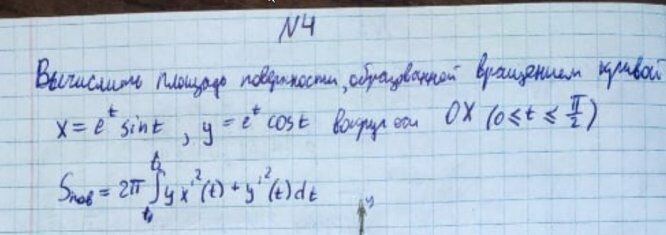 N4
Вычислить площадь поверхности, образованной вращением кривой
x = e^t sint, y = e^t cost вокруг оси OX (0 ≤ t ≤ π/2)
Sпов = 2π ∫_{t₁}^{t₂} y x'²(t) + y'²(t) dt
y